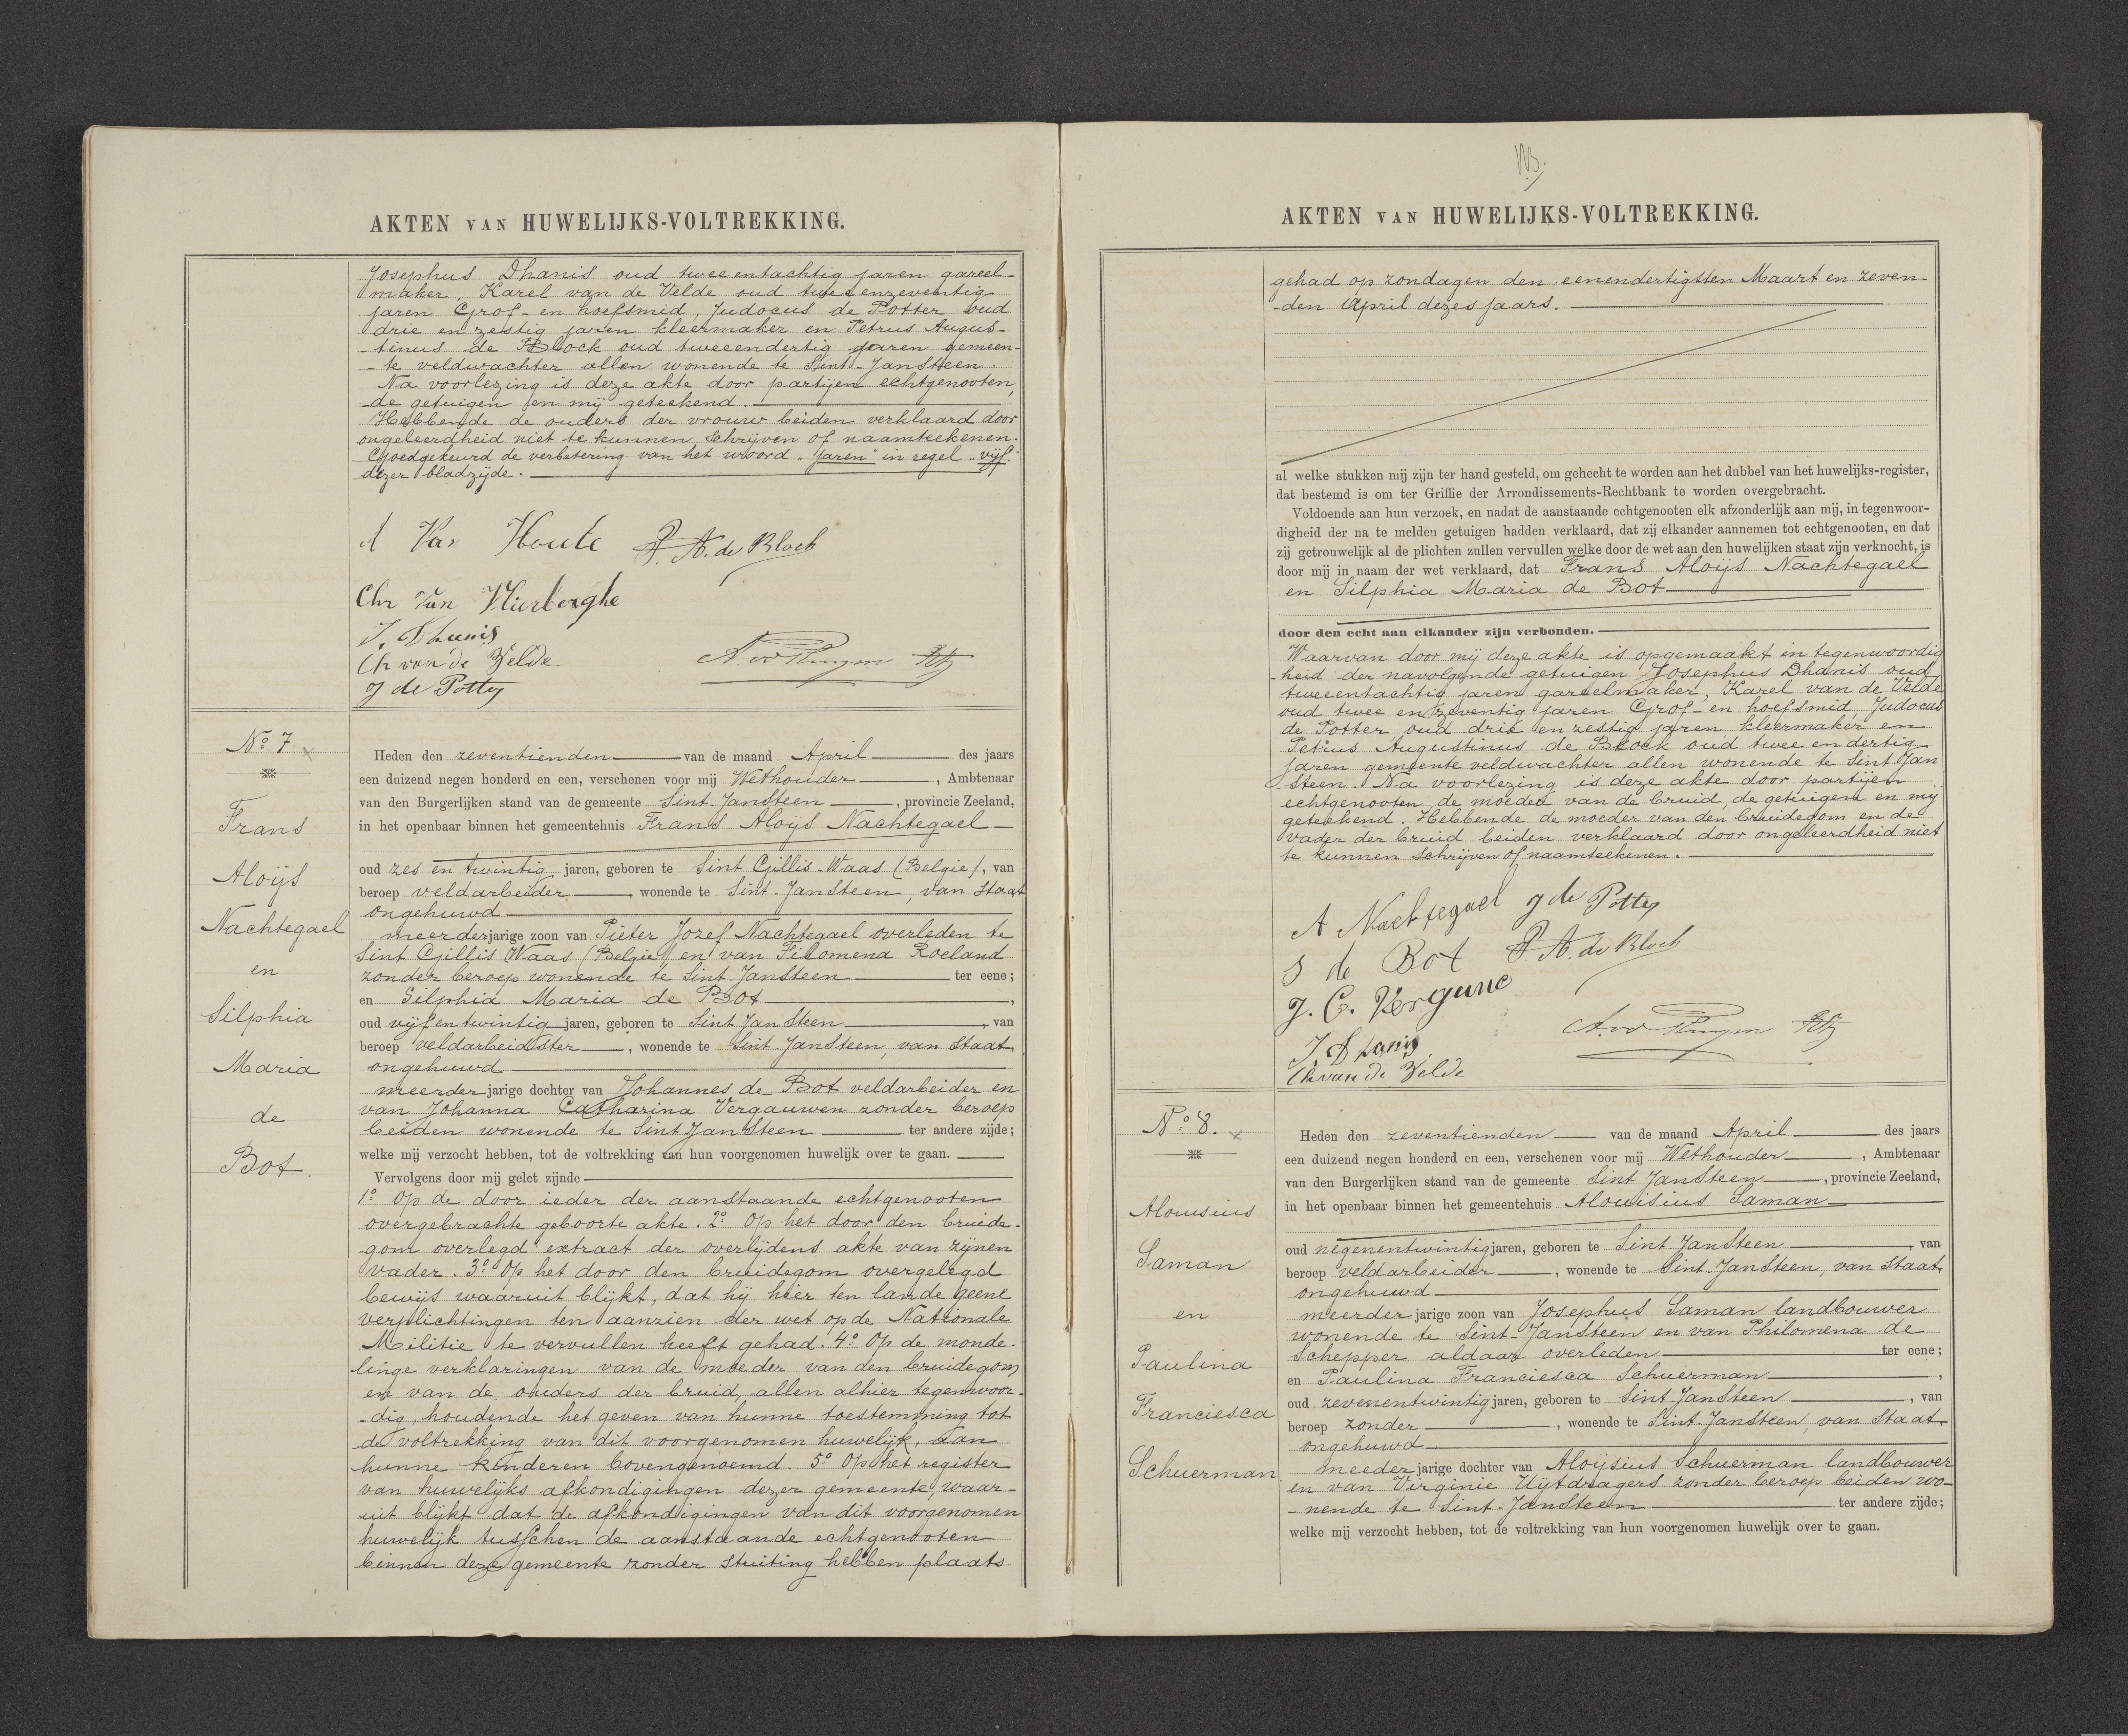 AKTEN VAN HUWELIJKS-VOLTREKKING.
Josephus Dhanis oud tweeentachtig jaren gareel-
maker, Karel van de Velde oud tweeenzeventig
jaren Grof- en hoefsmid, Judocus de Potter oud
drie en zestig jaren kleermaker en Petrus Augus-
-tinus de Block oud tweeendertig jaren gemeen-
-te veldwachter allen wonende te Sint-Jansteen.
Na voorlezing is deze akte door partijen echtgenooten,
de getuigen en mij geteekend.
Hebbende de ouders der vrouw beiden verklaard door
ongeleerdheid niet te kunnen schrijven of naamteekenen.
Goedgekeurd de verbetering van het woord "jaren" in regel "vijf"
dezer bladzijde.
A Van Houte P. A. de Block
Chr Van Hierberghe
J. Dhanis
Ch van de Velde
J de Potter
No 7 x
Frans
Aloijs
Nachtegael
en
Silphia
Maria
de
Bot.
Heden den zeventienden van de maand April des jaars
een duizend negen honderd en een, verschenen voor mij Wethouder, Ambtenaar
van den Burgerlijken stand van de gemeente Sint-Jansteen, provincie Zeeland,
in het openbaar binnen het gemeentehuis Frans Aloijs Nachtegael
oud zes en twintig jaren, geboren te Sint Gillis-Waas (Belgie), van
beroep veldarbeider, wonende te Sint-Jansteen, van staat
ongehuwd
meerderjarige zoon van Pieter Jozef Nachtegael overleden te
Sint Gillis Waas (Belgie) en van Filomena Roeland
zonder beroep wonende te Sint Jansteen ter eene;
en Silphia Maria de Bot,
oud vijf en twintig jaren, geboren te Sint Jansteen, van
beroep veldarbeidster, wonende te Sint-Jansteen, van staat
ongehuwd
meerderjarige dochter van Johannes de Bot veldarbeider en
van Johanna Catharina Vergauwen zonder beroep
beiden wonende te Sint Jansteen ter andere zijde;
welke mij verzocht hebben, tot de voltrekking van hun voorgenomen huwelijk over te gaan.
Vervolgens door mij gelet zijnde
1o Op de door ieder der aanstaande echtgenooten
overgebrachte geboorte akte. 2o Op het door den bruide-
-gom overlegd extract der overlijdens akte van zijnen
vader. 3o Op het door den bruidegom overgelegd
bewijs waaruit blijkt, dat hij hier ten lande geene
verplichtingen ten aanzien der wet op de Nationale
Militie te vervullen heeft gehad. 4o Op de monde-
-linge verklaringen van de moeder van den bruidegom
en van de ouders der bruid, allen alhier tegenwoor-
-dig, houdende het geven van hunne toestemming tot
de voltrekking van dit voorgenomen huwelijk, aan
hunne kinderen bovengenoemd. 5o Op het register
van huwelijks afkondigingen dezer gemeente, waar-
-uit blijkt dat de afkondigingen van dit voorgenomen
huwelijk tusschen de aanstaande echtgenooten
binnen deze gemeente zonder stuiting hebben plaats
AKTEN VAN HUWELIJKS-VOLTREKKING.
gehad op zondagen den eenendertigsten Maart en zeven-
-den April dezes jaars.
al welke stukken mij zijn ter hand gesteld, om gehecht te worden aan het dubbel van het huwelijks-register,
dat bestemd is om ter Griffie der Arrondissements-Rechtbank te worden overgebracht.
Voldoende aan hun verzoek, en nadat de aanstaande echtgenooten elk afzonderlijk aan mij, in tegenwoor-
digheid der na te melden getuigen hadden verklaard, dat zij elkander aannemen tot echtgenooten, en dat
zij getrouwelijk al de plichten zullen vervullen welke door de wet aan den huwelijken staat zijn verknocht, is
door mij in naam der wet verklaard, dat Frans Aloijs Nachtegael
en Silphia Maria de Bot
door den echt aan elkander zijn verbonden.
Waarvan door mij deze akte is opgemaakt in tegenwoordig
-heid der navolgende getuigen Josephus Dhanis oud
tweeentachtig jaren gareelmaker, Karel van de Velde
oud twee en zeventig jaren Grof- en hoefsmid, Judocus
de Potter oud drie en zestig jaren kleermaker en
Petrus Augustinus de Block oud twee en dertig
jaren gemeente veldwachter allen wonende te Sint Jan
steen. Na voorlezing is deze akte door partijen
echtgenooten, de moeder van de bruid, de getuigen en mij
geteekend. Hebbende de moeder van den bruidegom en de
vader der bruid beiden verklaard door ongeleerdheid niet
te kunnen schrijven of naamteekenen.
A Nachtegael J de Potter
S de Bot P. A. de Block
J. C. Vergune
J. Dhanis
Ch van de Velde
No 8. x
Alouisius
Saman
en
Paulina
Franciesca
Schuerman
Heden den zeventienden van de maand April des jaars
een duizend negen honderd en een, verschenen voor mij Wethouder, Ambtenaar
van den Burgerlijken stand van de gemeente Sint Jansteen, provincie Zeeland,
in het openbaar binnen het gemeentehuis Alouisius Saman
oud negenentwintig jaren, geboren te Sint Jansteen, van
beroep veldarbeider, wonende te Sint-Jansteen, van staat
ongehuwd
meerderjarige zoon van Josephus Saman landbouwer
wonende te Sint-Jansteen en van Philomena de
Schepper aldaar overleden ter eene;
en Paulina Franciesca Schuerman,
oud zevenentwintig jaren, geboren te Sint Jansteen, van
beroep zonder, wonende te Sint-Jansteen, van staat
ongehuwd
meederjarige dochter van Aloijsius Schuerman landbouwer
en van Virginie Uijtdragers zonder beroep beiden wo-
-nende te Sint-Jansteen ter andere zijde;
welke mij verzocht hebben, tot de voltrekking van hun voorgenomen huwelijk over te gaan.